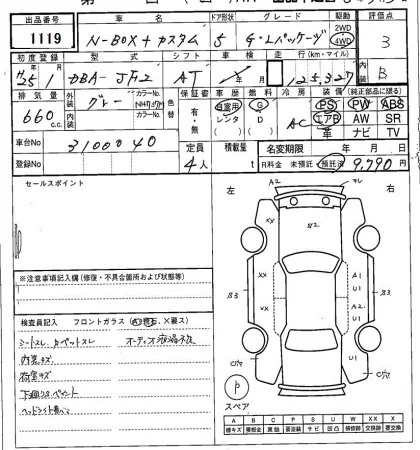 出品番号 車名 ドア形状 グレード 駆動 評価点
1119 N-BOX+カスタム 5 G・Lパッケージ 2WD 4WD 3
初度登録 型式 シフト 車検 走行(km・マイル) 内装
H25年1月 DBA-JF2 AT 125,327 B
排気量 外装 カラーNo. 色替 保証書 車歴 燃料 冷房 装備 (純正部品に限る)
660c.c. グレー NH737M 有・無 自家用 レンタ G D AC PS PW ABS
内装 カラーNo. エアB AW SR
革 ナビ TV
車台No 3100040 定員 積載量 名変期限 年 月 日
登録No 4人 t R料金 未預託 預託済 9,790円
セールスポイント
左 右
A2
B2
XX A1
U1
B3 B3
XX A2
U1
U1
C穴 C穴
P
スペア
※注意事項記入欄(修復・不具合箇所および状態等)
検査員記入 フロントガラス(A飛石、X要ス)
シートスレ、カーペットスレ オーディオ液晶不良
内装キズ
荷室キズ
下廻りサビペイント
A B C P S U W XX X
線キズ 要板金 腐蝕 要塗装 サビ 凹凸 補修跡 交換跡 要交換